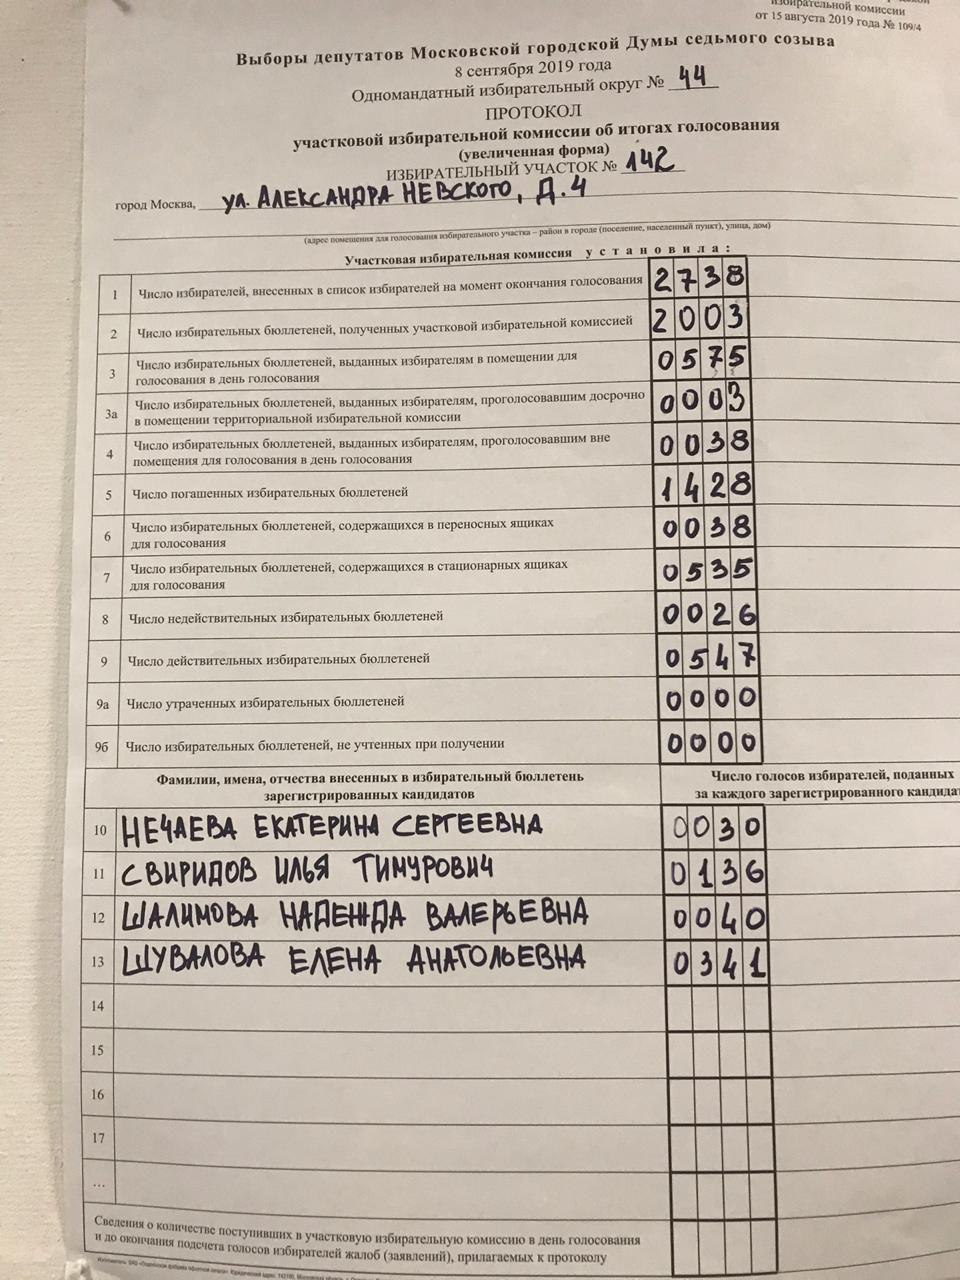 избирательной комиссии
от 15 августа 2019 года № 109/4
Выборы депутатов Московской городской Думы седьмого созыва
8 сентября 2019 года
Одномандатный избирательный округ № 44
ПРОТОКОЛ
участковой избирательной комиссии об итогах голосования
(увеличенная форма)
ИЗБИРАТЕЛЬНЫЙ УЧАСТОК № 142
город Москва, ул. АЛЕКСАНДРА НЕВСКОГО, Д.4
(адрес помещения для голосования избирательного участка – район в городе (поселение, населенный пункт), улица, дом)
Участковая избирательная комиссия установила:
1 Число избирателей, внесенных в список избирателей на момент окончания голосования 2738
2 Число избирательных бюллетеней, полученных участковой избирательной комиссией 2003
3 Число избирательных бюллетеней, выданных избирателям в помещении для
голосования в день голосования 0575
3а Число избирательных бюллетеней, выданных избирателям, проголосовавшим досрочно
в помещении территориальной избирательной комиссии 0003
4 Число избирательных бюллетеней, выданных избирателям, проголосовавшим вне
помещения для голосования в день голосования 0038
5 Число погашенных избирательных бюллетеней 1428
6 Число избирательных бюллетеней, содержащихся в переносных ящиках
для голосования 0038
7 Число избирательных бюллетеней, содержащихся в стационарных ящиках
для голосования 0535
8 Число недействительных избирательных бюллетеней 0026
9 Число действительных избирательных бюллетеней 0547
9а Число утраченных избирательных бюллетеней 0000
9б Число избирательных бюллетеней, не учтенных при получении 0000
Фамилии, имена, отчества внесенных в избирательный бюллетень
зарегистрированных кандидатов
Число голосов избирателей, поданных
за каждого зарегистрированного
10 НЕЧАЕВА ЕКАТЕРИНА СЕРГЕЕВНА 0030
11 СВИРИДОВ ИЛЬЯ ТИМУРОВИЧ 0136
12 ШАЛИМОВА НАДЕЖДА ВАЛЕРЬЕВНА 0040
13 ШУВАЛОВА ЕЛЕНА АНАТОЛЬЕВНА 0341
14
15
16
17
...
Сведения о количестве поступивших в участковую избирательную комиссию в день голосования
и до окончания подсчета голосов избирателей жалоб (заявлений), прилагаемых к протоколу